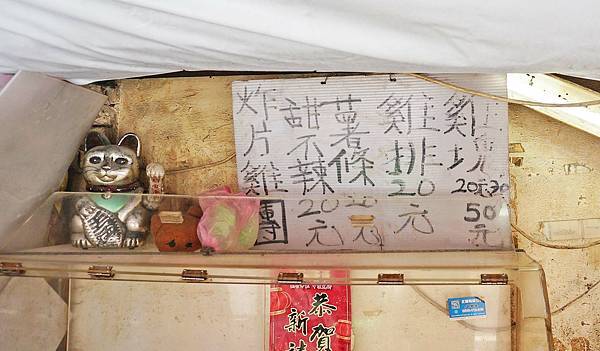 雞塊20元30
50元
雞排20元
薯條20元
甜不辣20元
炸片雞
團
恭賀
新禧